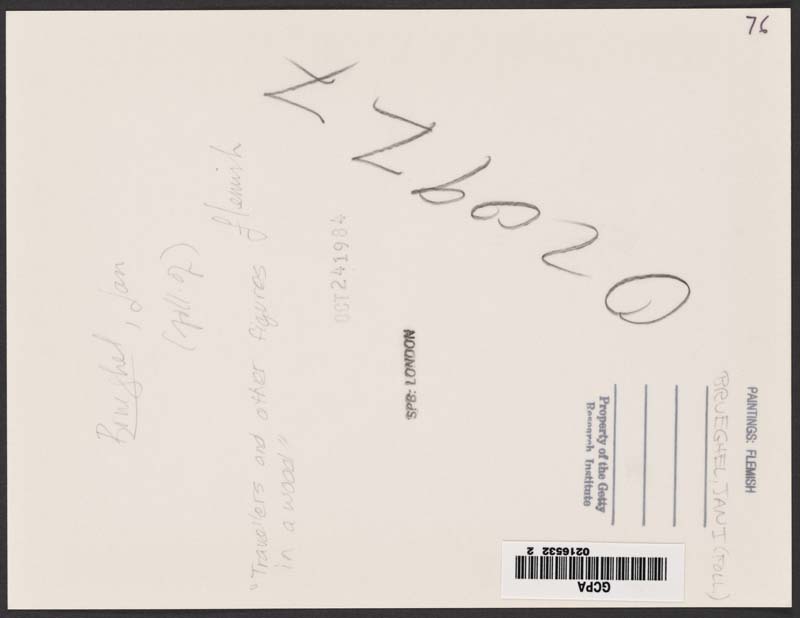 76
Brueghel, Jan
(foll. of)
Flemish
"Travellers and other figures
in a wood"
OCT 24 1984
SPB: LONDON
PAINTINGS: FLEMISH
BRUEGHEL, JAN I (FOLL)
Property of the Getty
Research Institute
GCPA
0216532 2